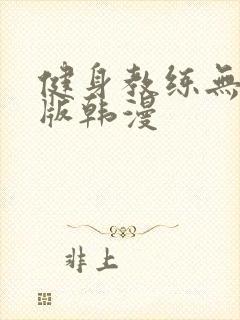 健身教练無
版韩漫
非上